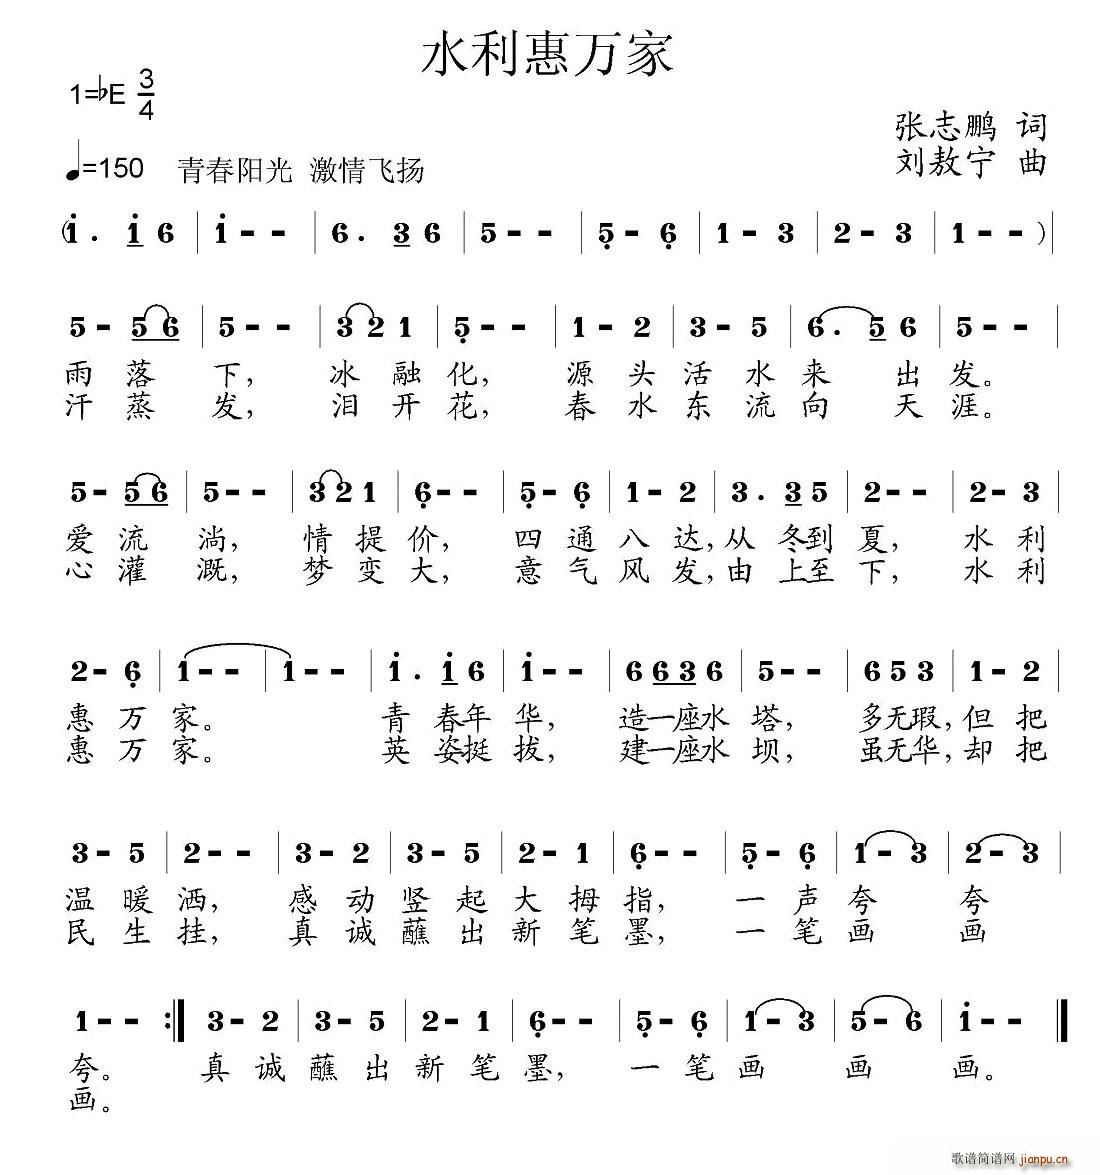 水利惠万家
1=♭E 3/4
张志鹏 词
♩=150 青春阳光 激情飞扬
刘敖宁 曲
(i . i 6 | i - - | 6 . 3 6 | 5 - - | 5 - 6 | 1 - 3 | 2 - 3 | 1 - - ) |
5 - 5 6 | 5 - - | 3 2 1 | 5 - - | 1 - 2 | 3 - 5 | 6 . 5 6 | 5 - - |
雨 落 下， 冰 融 化， 源 头 活 水 来 出 发。
汗 蒸 发， 泪 开 花， 春 水 东 流 向 天 涯。
5 - 5 6 | 5 - - | 3 2 1 | 6 - - | 5 - 6 | 1 - 2 | 3 . 3 5 | 2 - - | 2 - 3 |
爱 流 淌， 情 提 价， 四 通 八 达，从 冬到 夏， 水 利
心 灌 溉， 梦 变 大， 意 气 风 发，由 上至 下， 水 利
2 - 6 | 1 - - | 1 - - | i . i 6 | i - - | 6 6 3 6 | 5 - - | 6 5 3 | 1 - 2 |
惠 万 家。 青 春年 华， 造一座水 塔， 多无瑕，但 把
惠 万 家。 英 姿挺 拔， 建一座水 坝， 虽无华，却 把
3 - 5 | 2 - - | 3 - 2 | 3 - 5 | 2 - 1 | 6 - - | 5 - 6 | 1 - 3 | 2 - 3 |
温 暖 洒， 感 动 竖 起 大 拇 指， 一 声 夸 夸
民 生 挂， 真 诚 蘸 出 新 笔 墨， 一 笔 画 画
1 - - :‖ 3 - 2 | 3 - 5 | 2 - 1 | 6 - - | 5 - 6 | 1 - 3 | 5 - 6 | i - - ‖
夸。 真 诚 蘸 出 新 笔 墨， 一 笔 画 画 画。
画。
歌谱简谱网
jianpu.cn